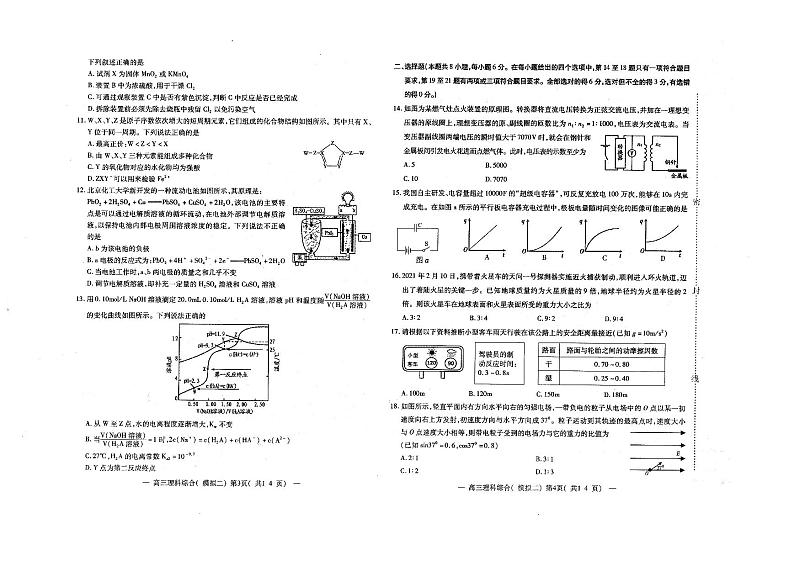 下列叙述正确的是
A. 试剂 X 为固体 MnO₂ 或 KMnO₄
B. 装置 B 中为浓硫酸,用于干燥 Cl₂
C. 可通过观察装置 C 中是否有紫色沉淀,判断 C 中反应是否已经完成
D. 拆除装置前必须先除去烧瓶中残留 Cl₂ 以免污染空气
11. W、X、Y、Z 是原子序数依次增大的短周期元素,它们组成的化合物结构如图所示。其中只有 X、
Y 位于同一周期。下列说法正确的是
A. 最高正价:W<Z<Y<X
B. 由 W、X、Y 三种元素能组成多种化合物
C. Y 的氧化物对应的水化物均为强酸
D. ZXY⁻可以用来检验 Fe³⁺
W-Z
Z-W
Y
12. 北京化工大学新开发的一种流动电池如图所示,其原理是:
PbO₂+2H₂SO₄+Cu══PbSO₄+CuSO₄+2H₂O,该电池的主要特
点是可以通过电解质溶液的循环流动,在电池外部调节电解质溶
液,以保持电池内部电极周围溶液浓度的稳定。下列说法不正确
的是
A. b 为该电池的负极
B. a 电极的反应式为:PbO₂+4H⁺+SO₄²⁻+2e⁻══PbSO₄+2H₂O
C. 当电池工作时,a、b 两电极的质量之和几乎不变
D. 调节电解质溶液,即补充一定量的 H₂SO₄ 溶液和 CuSO₄ 溶液
13. 用 0.10mol/L NaOH 溶液滴定 20.0mL 0.10mol/L H₂A 溶液,溶液 pH 和温度随V(NaOH 溶液)/V(H₂A 溶液)
的变化曲线如图所示。下列说法正确的
pH=11.9
12
27
25
8
4
第一反应终点
0.50 1.00 1.50 2.00
A. 从 W 至 Z 点,水的电离程度逐渐增大,Kw 不变
B. 当V(NaOH 溶液)/V(H₂A 溶液)=1 时,2c(Na⁺)=c(H₂A)+c(HA⁻)+c(A²⁻)
D. Y 点为第二反应终点
— 高三理科综合( 模拟二) 第3页( 共1 4 页) —
二、选择题(本题共 8 小题,每小题 6 分。在每小题给出的四个选项中,第 14 至 18 题只有一项符合题目
要求,第 19 至 21 题有两项或三项符合题目要求。全部选对的得 6 分,选对但不全的得 3 分,有选错
的得 0 分。)
14. 如图为某燃气灶点火装置的原理图。转换器将直流电压转换为正弦交流电压,并加在一理想变
压器的原线圈上,理想变压器的原、副线圈的匝数比为 n₁:n₂=1:1000,电压表为交流电表。当
变压器副线圈两端电压的瞬时值大于 7070V 时,就会在钢针和
金属板间引发电火花进而点燃气体。此时,电压表的示数至少为
A. 5
B. 5000
C. 10
D. 7070
转换器
V
n₁
n₂
钢针
金属板
15. 我国自主研发、电容量超过 10000F 的“超级电容器”,可反复充放电 100 万次,能够在 10s 内完
成充电。在如图 a 所示的平行板电容器充电过程中,极板电量随时间变化的图像可能正确的是
C
E
S
图a
q
t
A
q
t
B
q
t
C
q
t
D
16. 2021 年 2 月 10 日,携带着火星车的天问一号探测器实施近火捕获制动,顺利进入环火轨道,迈
出了着陆火星的关键一步。已知地球质量约为火星质量的 9 倍,地球半径约为火星半径的 2
倍。则该火星车在地球表面和火星表面所受的重力大小之比为
A. 3:2
B. 3:4
C. 9:2
D. 9:4
17. 请根据以下资料推断小型客车雨天行驶在该公路上的安全距离最接近(已知 g=10m/s²)
小型
客车
120
90
驾驶员的制
动反应时间:
0.3-0.8s
路面
路面与轮胎之间的动摩擦因数
干
0.70-0.80
湿
0.25-0.40
A. 100m
B. 120m
C. 150m
D. 180m
18. 如图所示,竖直平面内有方向水平向右的匀强电场,一带负电的粒子从电场中的 O 点以某一初
速度向右上方发射,初速度方向与水平方向成 37°。粒子运动到其轨迹的最高点时,速度大小
与 O 点速度大小相等,则带电粒子受到的电场力与它的重力的比值为
(已知 sin37°=0.6,cos37°=0.8)
A. 2:1
B. 3:1
C. 1:2
D. 1:3
E
— 高三理科综合( 模拟二) 第4页( 共1 4 页) —
封
线